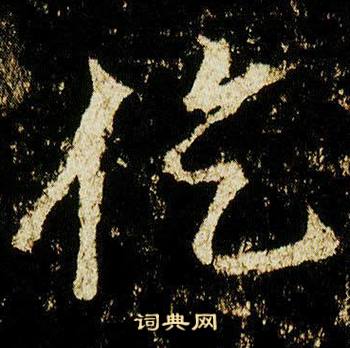 仡
词典网